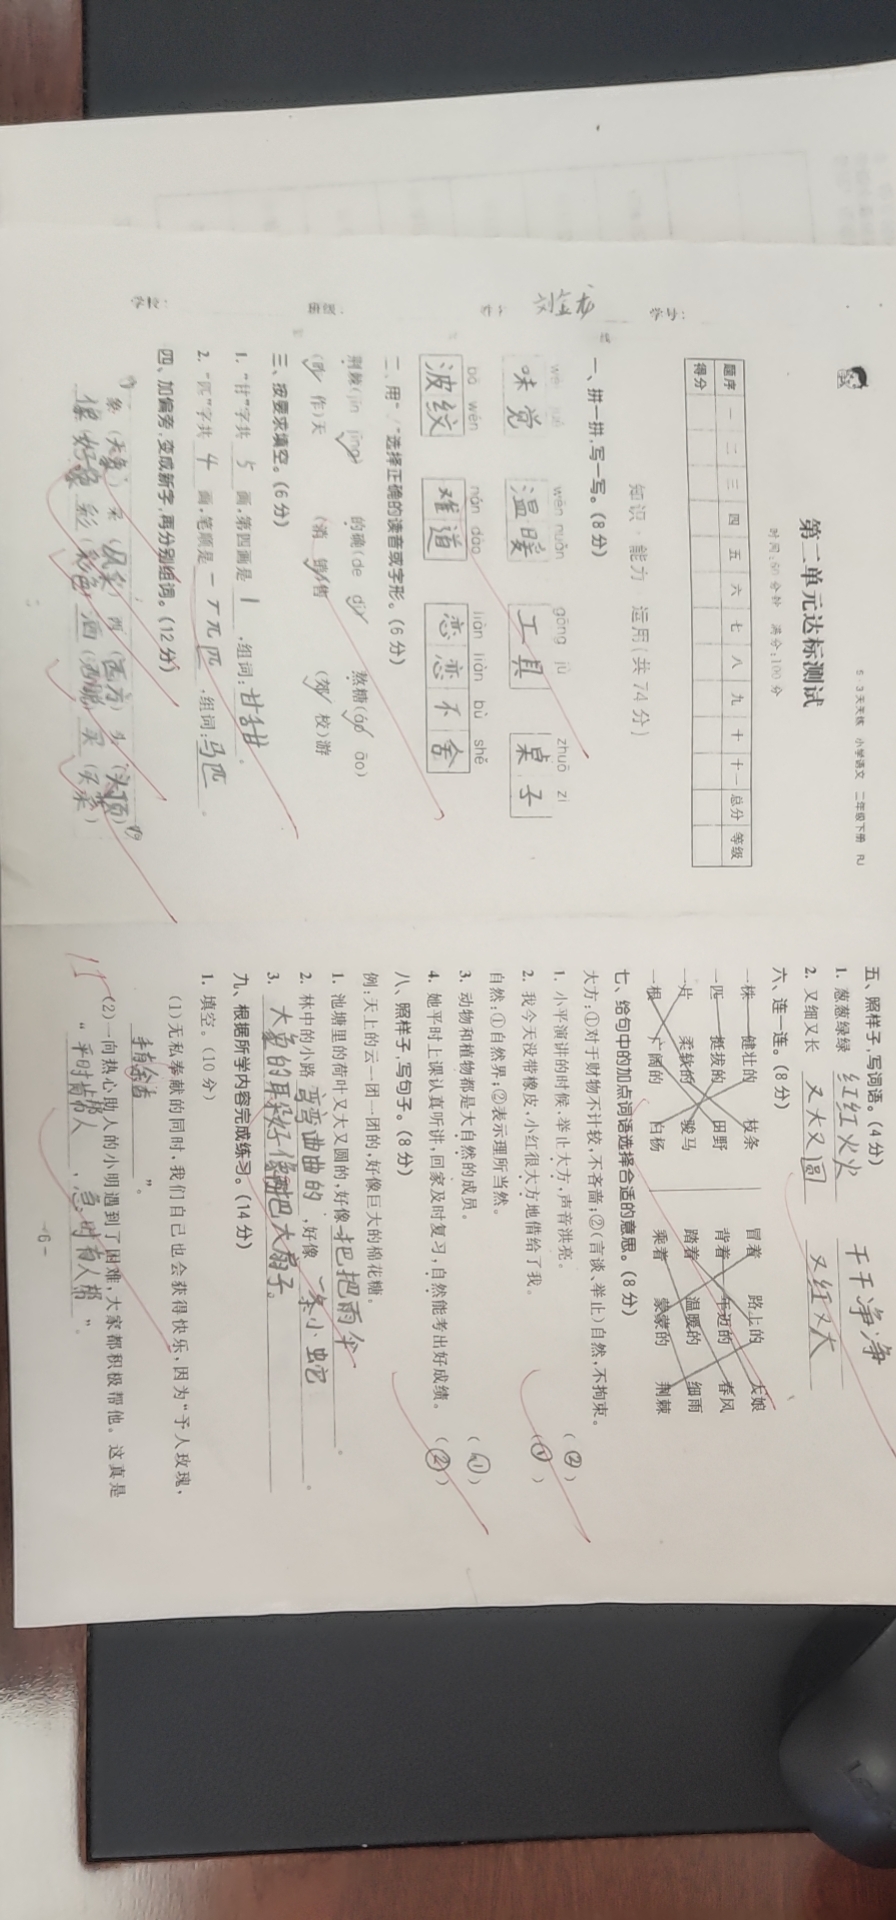 5·3天天练 小学语文 二年级下册 RJ
第二单元达标测试
时间:60分钟 满分:100分
题序 一 二 三 四 五 六 七 八 九 十 十一 总分 等级
得分
知识·能力 运用(共74分)
一、拼一拼,写一写。(8分)
wèi jué wēn nuǎn gōng jù zhuō zi
味觉 温暖 工具 桌子
bō wén nán dào liàn liàn bù shě
波纹 难道 恋恋不舍
二、用“√”选择正确的读音或字形。(6分)
荆棘(jīn jīng) 的确(de dí) 熬糖(áo āo)
(昨 作)天 (消 销)售 (郊 校)游
三、按要求填空。(6分)
1. “甘”字共 5 画,第四画是 丨 ,组词: 甘甜 。
2. “匹”字共 4 画,笔顺是 一 丆 兀 匹 ,组词: 马匹 。
四、加偏旁,变成新字,再分别组词。(12分)
例 象(大象) 采(风采) 西(西方) 头(头顶)
像 好像 彩(彩色) 洒 买(买来)
五、照样子,写词语。(4分)
1. 葱葱绿绿 红红火火 干干净净
2. 又细又长 又大又圆 又红又大
六、连一连。(8分)
一株 健壮的 枝条 冒着 路上的 大娘
一匹 挺拔的 田野 背着 年迈的 春风
一片 柔软的 骏马 踏着 温暖的 细雨
一根 广阔的 白杨 乘着 蒙蒙的 荆棘
七、给句中的加点词语选择合适的意思。(8分)
大方:①对于财物不计较,不吝啬;②(言谈、举止)自然,不拘束。
1. 小平演讲的时候,举止大方,声音洪亮。 (②)
2. 我今天没带橡皮,小红很大方地借给了我。 (①)
自然:①自然界;②表示理所当然。
3. 动物和植物都是大自然的成员。 (①)
4. 她平时上课认真听讲,回家及时复习,自然能考出好成绩。 (②)
八、照样子,写句子。(8分)
例:天上的云一团一团的,好像巨大的棉花糖。
1. 池塘里的荷叶又大又圆的,好像 一把把雨伞 。
2. 林中的小路 弯弯曲曲的 ,好像 一条小蛇 。
3. 大象的耳朵好像两把大扇子。
九、根据所学内容完成练习。(14分)
1. 填空。(10分)
(1)无私奉献的同时,我们自己也会获得快乐,因为“予人玫瑰,
手有余香 ”。
(2)一向热心助人的小明遇到了困难,大家都积极帮他。这真是
“ 平时帮人 , 急时有人帮 ”。
-6-